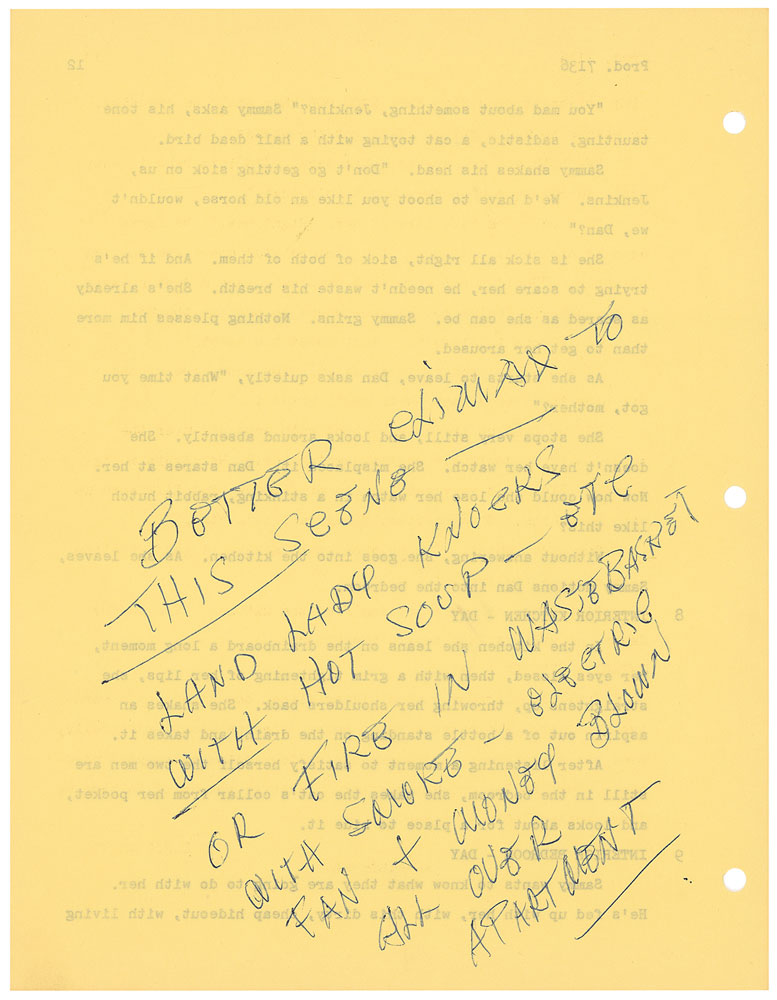 Prod. 7136 12
"You mad about something, Jenkins?" Sammy asks, his tone
taunting, sadistic, a cat toying with a half dead bird.
Sammy shakes his head. "Don't go getting sick on us,
Jenkins. We'd have to shoot you like an old horse, wouldn't
we, Dan?"
She is sick all right, sick of both of them. And if he's
trying to scare her, he needn't waste his breath. She's already
as scared as she can be. Sammy grins. Nothing pleases him more
than to get her aroused.
As she starts to leave, Dan asks quietly, "What time you
got, mother?"
She stops very still, and looks around absently. She
doesn't have her watch. She misplaced it. Dan stares at her.
Now how could she lose her watch in a stinking, rabbit hutch
like this?
Without answering, she goes into the kitchen. As she leaves,
Sammy motions Dan into the bedroom.
8 INTERIOR KITCHEN - DAY
the kitchen she leans on the drainboard a long moment,
her eyes closed, then with a grim tightening of her lips, she
straightens up, throwing her shoulders back. She shakes an
aspirin out of a bottle standing on the drain and takes it.
After listening a moment to satisfy herself the two men are
still in the bedroom, she takes the cat's collar from her pocket,
and looks about for a place to hide it.
9 INTERIOR BEDROOM - DAY
Sammy wants to know what they are going to do with her.
He's fed up with her, with this dirty, cheap hideout, with living
BETTER CLIMAX TO
THIS SCENE
LAND LADY KNOCKS
WITH HOT SOUP — ETC
OR FIRE IN WASTEBASKET
WITH SMOKE — ELECTRIC
FAN + MONEY BLOWN
ALL OVER
APARTMENT